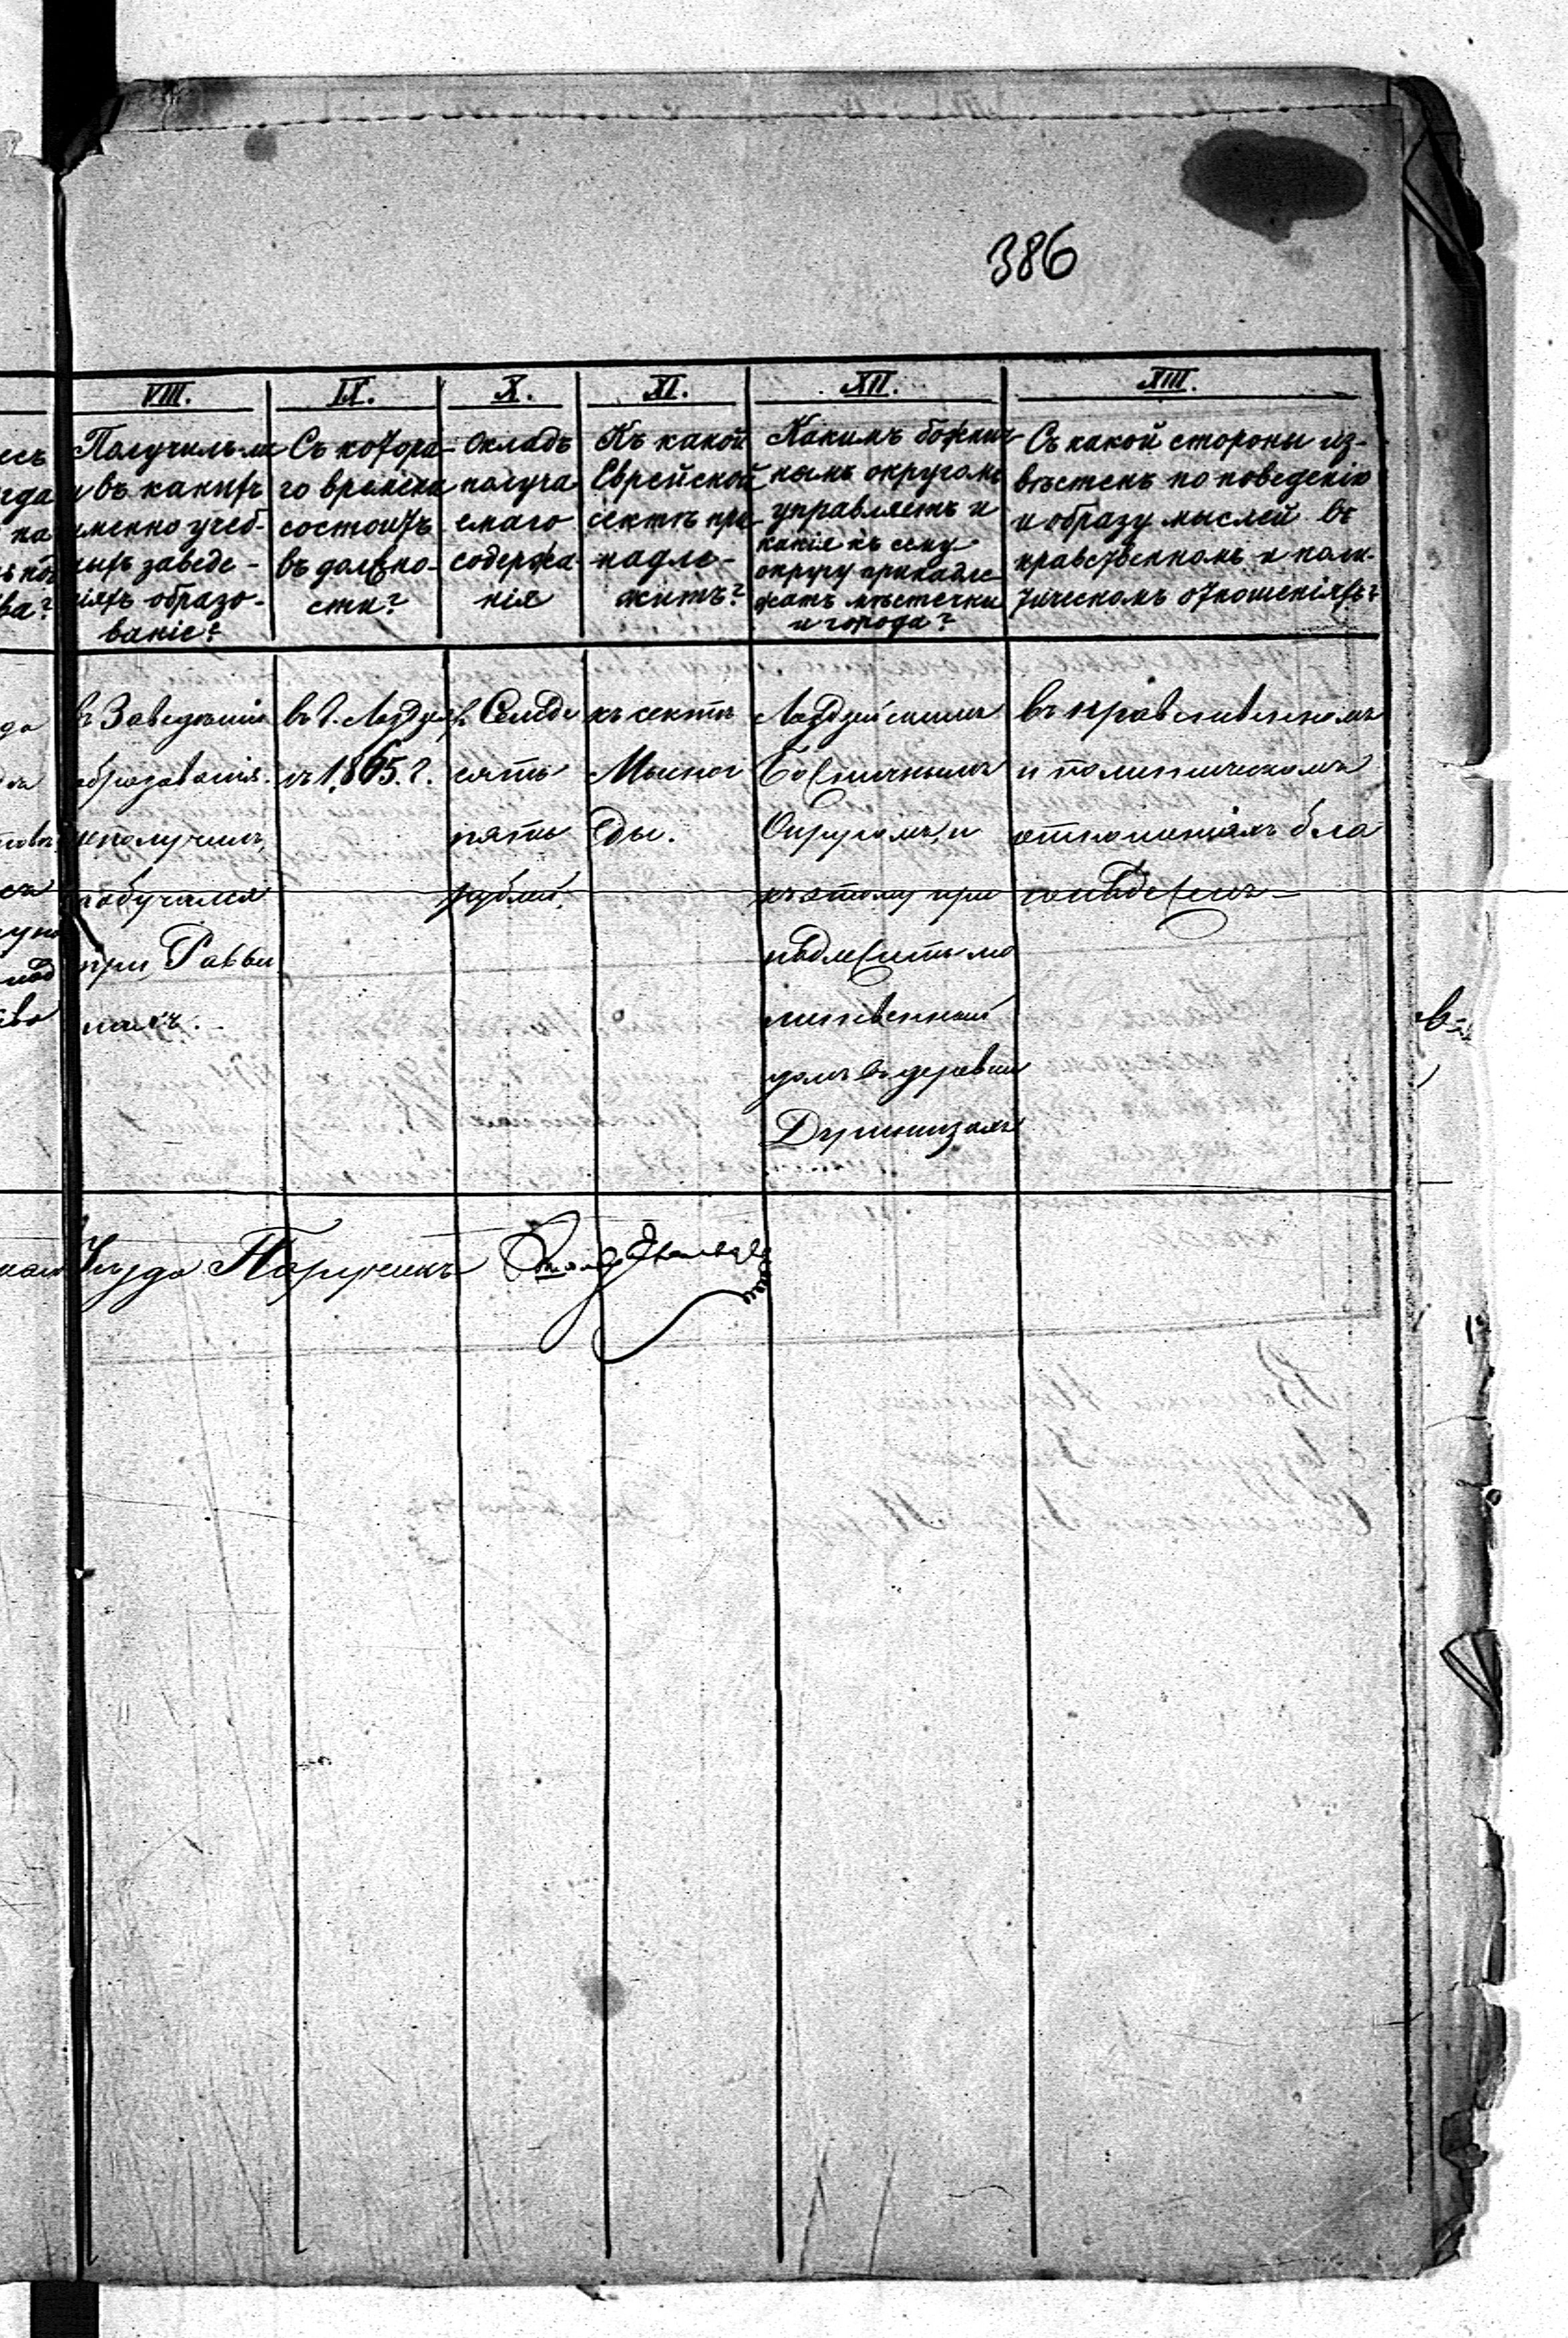 386
VIII.
Получилъ ли
и въ какихъ
именно учеб-
ныхъ заведе-
ніяхъ образо-
ваніе?
IX.
Съ котора-
го времени
состоитъ
въ должно-
сти?
X.
Окладъ
получа
емаго
содержа
нія
XI.
Къ какой
Еврейской
сектѣ при-
надле-
житъ?
XII.
Какимъ божнич
нымъ округомъ
управляетъ и
какіе къ сему
округу принадле
жатъ мѣстечки
и города?
XIII.
Съ какой стороны из-
вѣстенъ по поведенію
и образу мыслей въ
нравственномъ и поли-
тическомъ отношеніяхъ?
въ Заведеніи
образованія
неполучилъ,
а обучался
при Равви
нахъ.
въ г. Лозд
съ 1865. г.
Семьде
сятъ
пять
рублей.
къ сектѣ
Миснаг
ды.
Лоздзейскимъ
Божничнымъ
Округомъ, и
къ этому при
надлежитъ мо
литвенный
домъ въ деревни
въ нравственномъ
и политическомъ
отношеніяхъ бла
гонадеженъ
Уѣзда Поручикъ